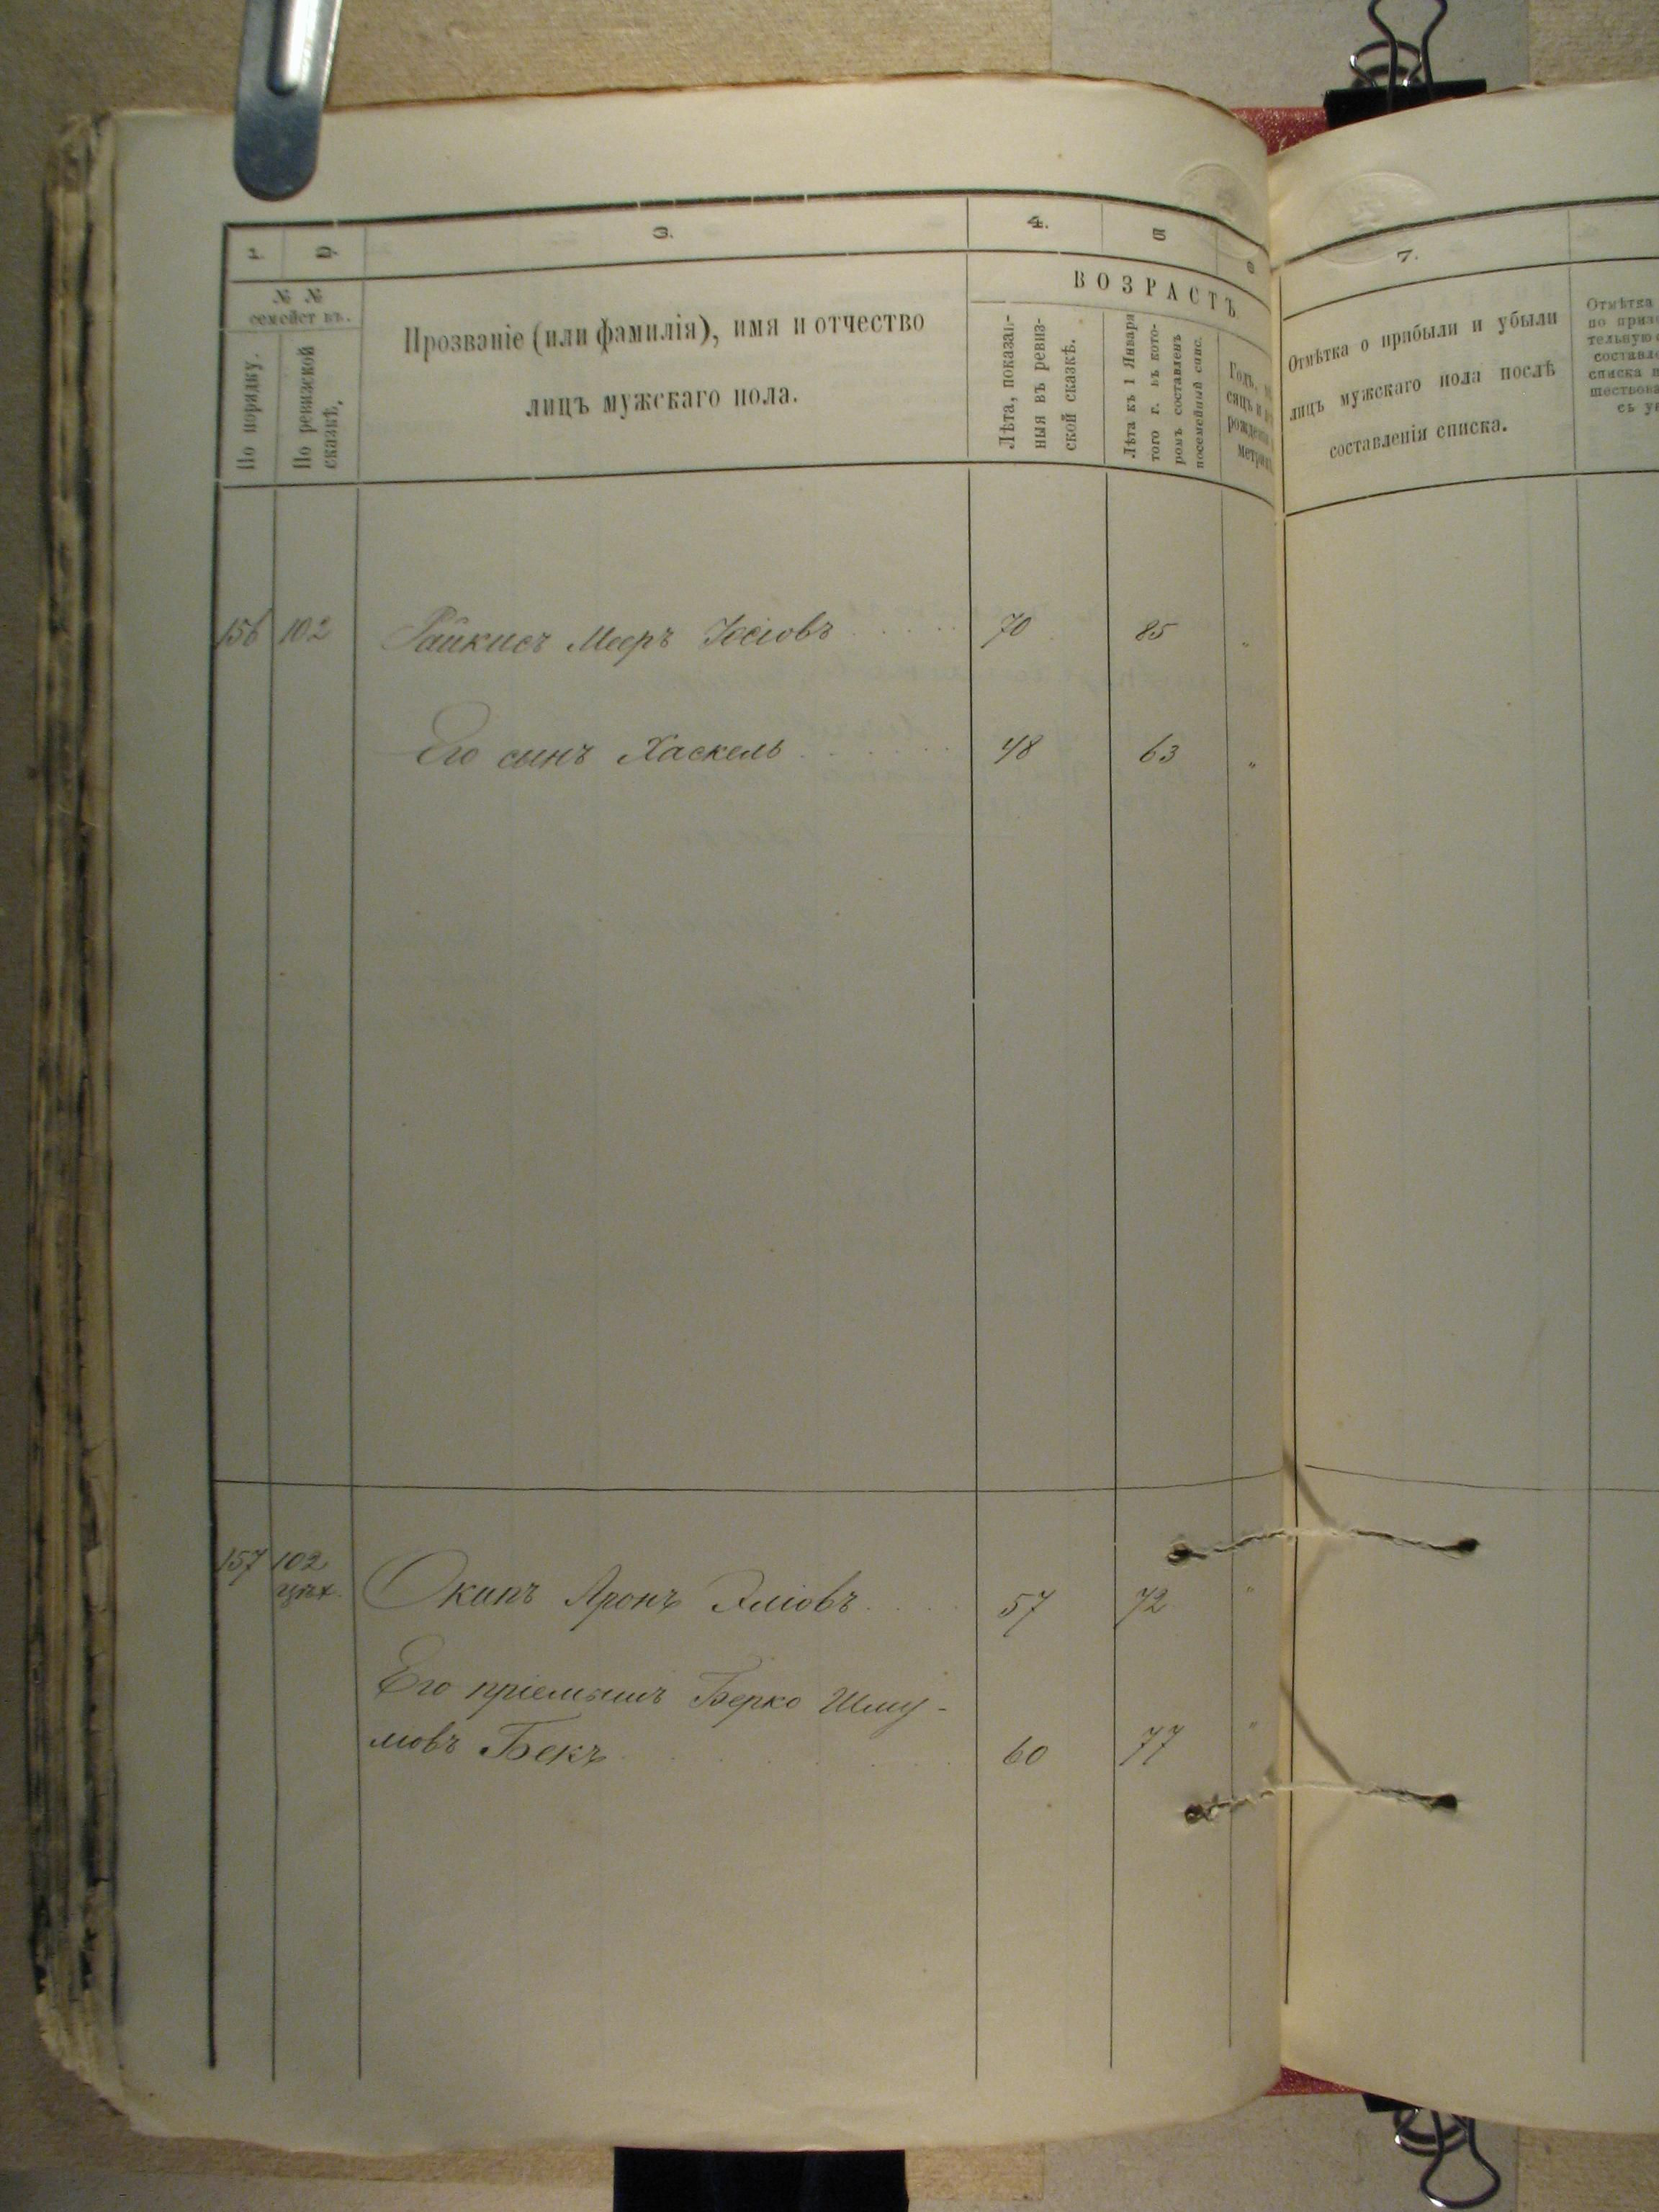 1.
2.
3.
4.
5
6
№ №
семействъ.
По порядку.
По ревизской
сказкѣ.
Прозваніе (или фамилія), имя и отчество
лицъ мужскаго пола.
ВОЗРАСТЪ
Лѣта, показан-
ныя въ ревиз-
ской сказкѣ.
Лѣта къ 1 Января
того г. въ кото-
ромъ составленъ
посемейный спис.
Годъ,
рожденія
156 102 Райкисъ Мееръ Іосіовъ 70 85 „
Его сынъ Хаскель 48 63 „
157 102
цѣх. Окипъ Аронъ Эліовъ 57 72 „
Его пріемышъ Берко Шму-
ловъ Бекъ 60 77 „
7.
Отмѣтка о прибыли и убыли
лицъ мужскаго пола послѣ
составленія списка.
Отмѣтка
по
списка